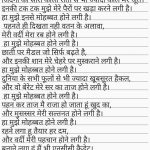 इनकी टक टक मुझे मेरे पैरों पर खड़ा करने लगी है।
हा मुझे इनसे मोहब्बत होने लगी है।
पहनते ही दिखता नही वतन के अलावा,
मेरी वर्दी मेरा रब होने लगी है,
हा मुझे मोहब्बत होने लगी है।
छाती पर मैडल जो सिर्फ बढ़ते है,
और इनकी शान मेरे चेहरे पर मुस्कराने लगी है।
हा मुझे मोहब्बत होने लगी है।
दुनिया के सभी फूलों से भी ज्यादा खूबसूरत हैकल,
और वो बेरेट मेरे सर का ताज होने लगी है।
हा मुझे मोहब्बत होने लगी है।
पहन कर ताज मै राजा हो जाता हूं खुद का,
और मुसलसर मेरी सल्तनत होने लगी है।
हा मुझे मोहब्बत होने लगी है।
रहने लगा हू तैयार हर दम,
और वर्दी मेरी पहचान होने लगी है।